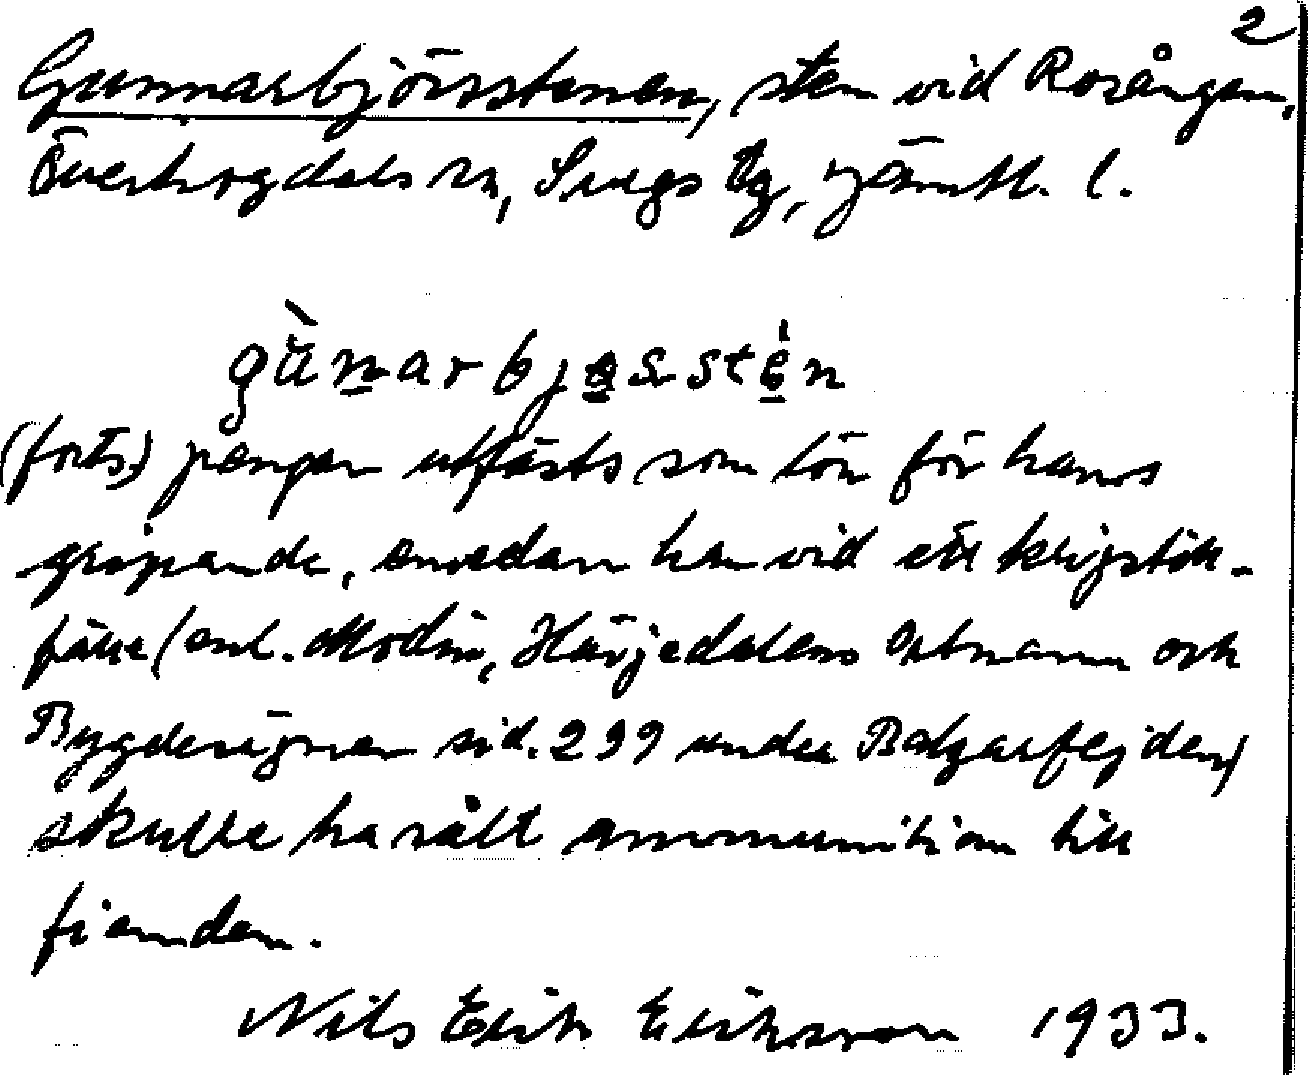 2
Gunnarbjörsstenen, sten vid Rosången,
Överhogdals sn, Svegs tg, Jämtl. l.
gùnarbjɵsstèn
(forts.) pengar utfästs som lön för hans
gripande, emedan han vid ett krigstill-
fälle (enl. Modin, Härjedalens Ortnamn och
Bygdesägner sid. 299 under Baltzarfejden)
skulle ha sålt ammunition till
fienden.
Nils Erik Eriksson 1933.